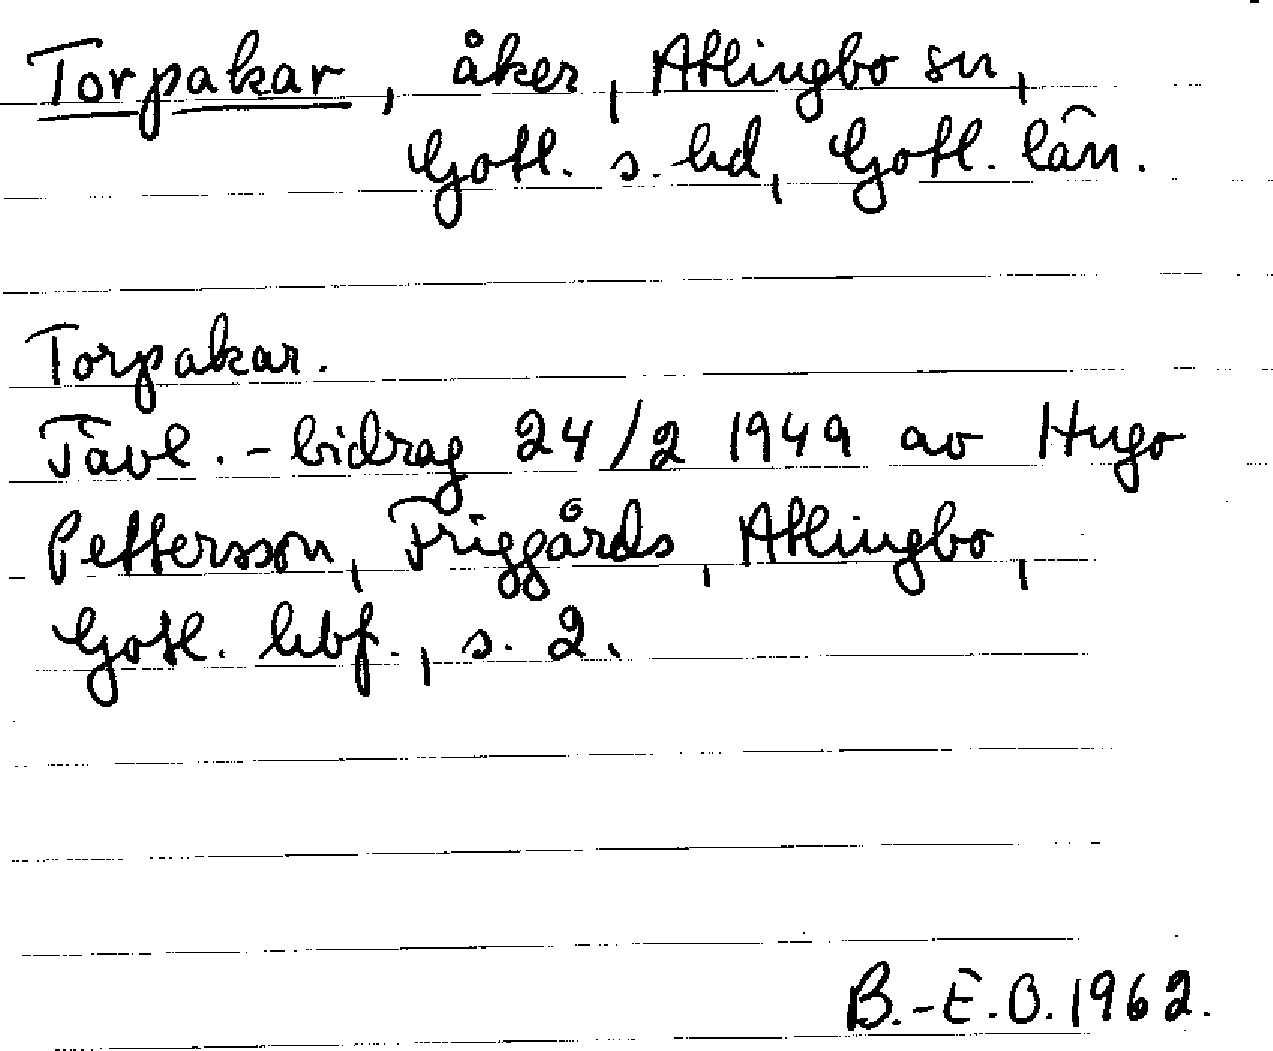 Torpakar, åker, Atlingbo sn,
Gotl. s. hd, Gotl. län.
Torpakar.
Tävl.-bidrag 24/2 1949 av Hugo
Pettersson, Friggårds, Atlingbo,
Gotl. hbf., s. 2.
B.-E.O. 1962.